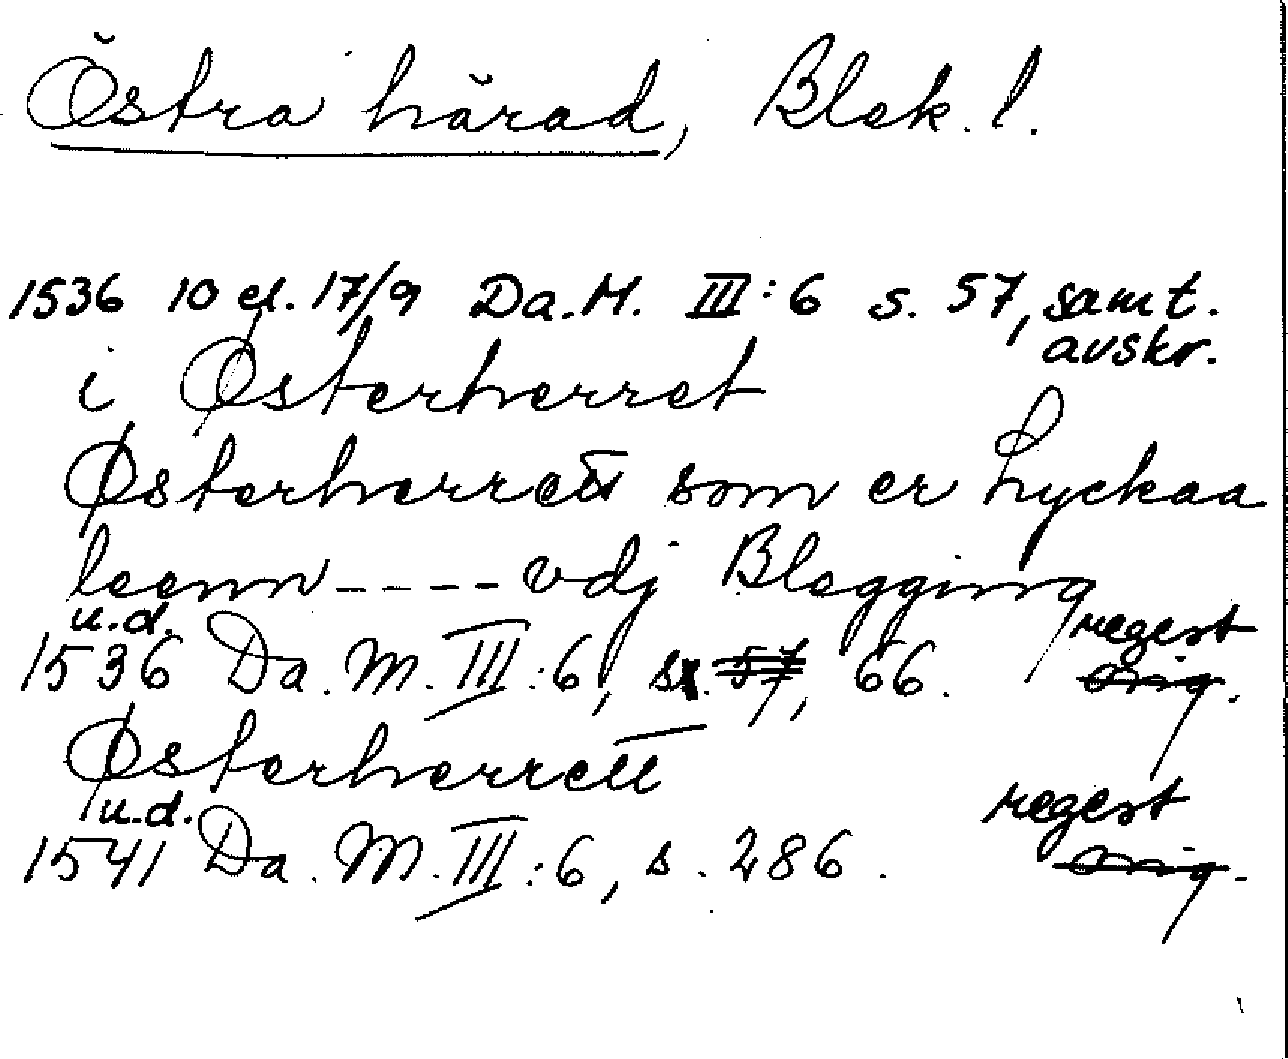 Östra härad, Blek. l.
1536 10 el. 17/9 Da. M. III:6 s. 57, samt. avskr.
i Østerherret
Østerherrett som er Lyckaa
leenn ---- vdj Blegging
u.d. regest
1536 Da. M. III:6, s. 57, 66. orig.
Østerherrett
u.d. regest
1541 Da. M. III:6, s. 286. orig.